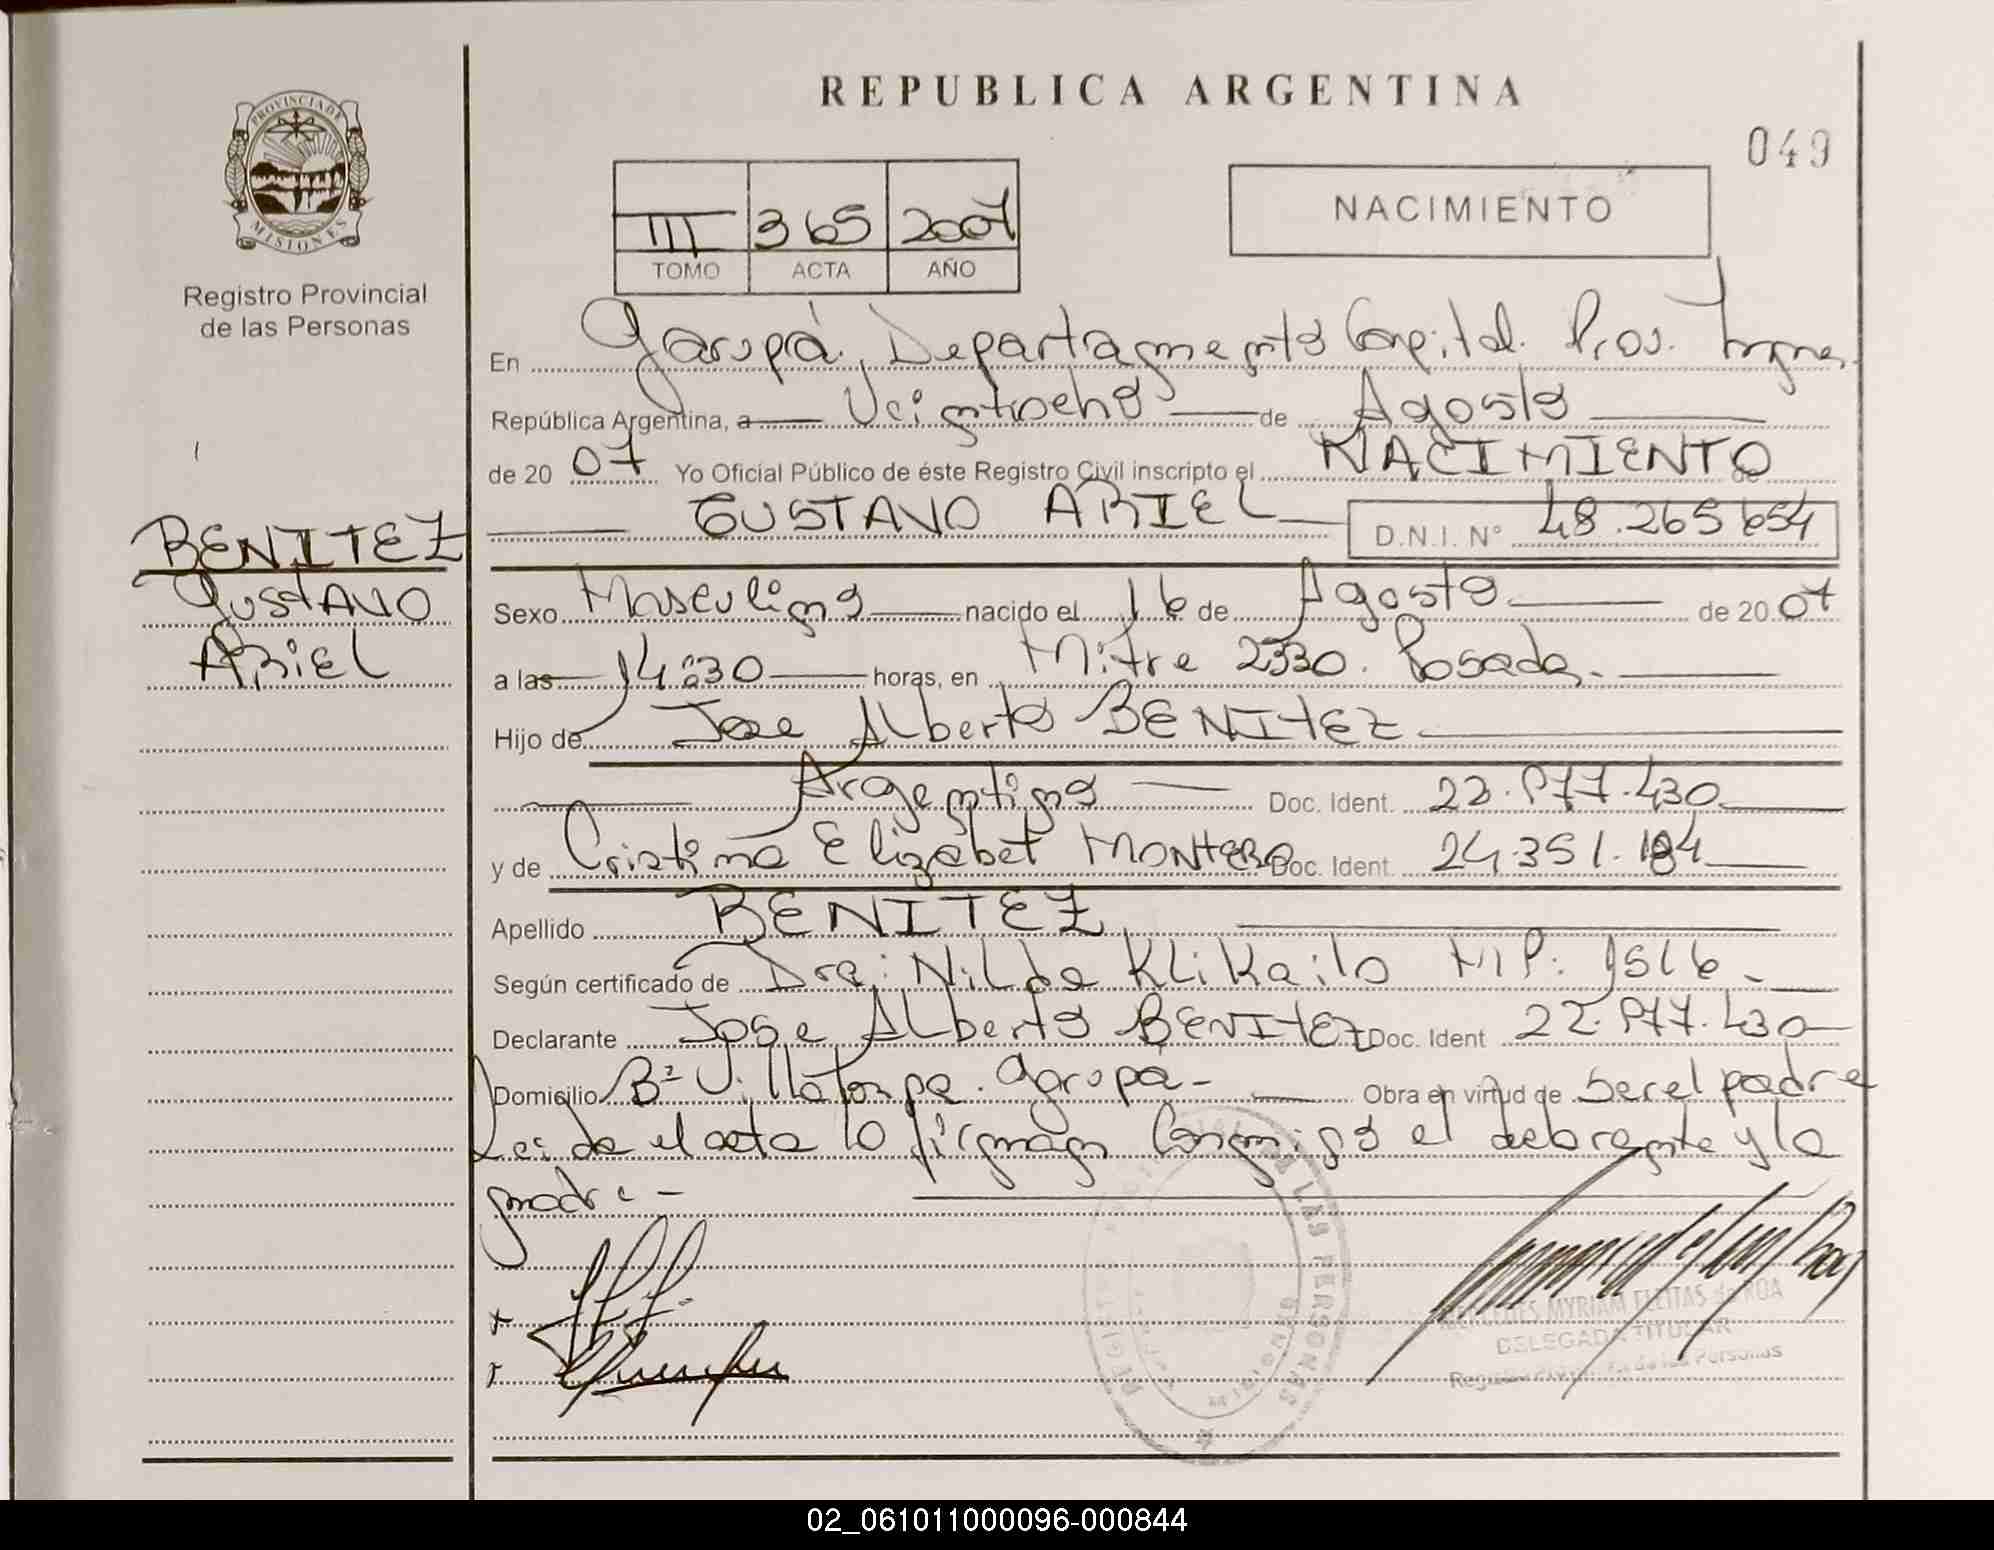 REPUBLICA ARGENTINA
049
PROVINCIA DE
MISIONES
Registro Provincial
de las Personas
III 365 2007
TOMO ACTA AÑO
NACIMIENTO
En Garupá, Departamento Capital. Prov. Mnes.
República Argentina, a Veintiocho de Agosto
de 20 07 Yo Oficial Público de éste Registro Civil inscripto el NACIMIENTO de
GUSTAVO ARIEL D.N.I. N° 48.265 654
BENITEZ
Gustavo
Ariel
Sexo Masculino nacido el 16 de Agosto de 20 07
a las 14:30 horas, en Mitre 2330. Posadas.
Hijo de Jose Alberto BENITEZ
Argentino Doc. Ident. 22.977.430
y de Cristina Elizabet MONTERO Doc. Ident. 24.351.184
Apellido BENITEZ
Según certificado de Dra: Nilda Klikailo MP:
Declarante Jose Alberto BENITEZ Doc. Ident 22.977.430
Domicilio B° Villalonga. Garupá - Obra en virtud de ser el padre
Leida el acta lo firman Conmigo el declarante y la
madre -
REGISTRO PROVINCIAL DE LAS PERSONAS
MISIONES
MERCEDES MYRIAM FLEITAS de ROA
DELEGADA TITULAR
Registro Provincial de las Personas
02_061011000096-000844